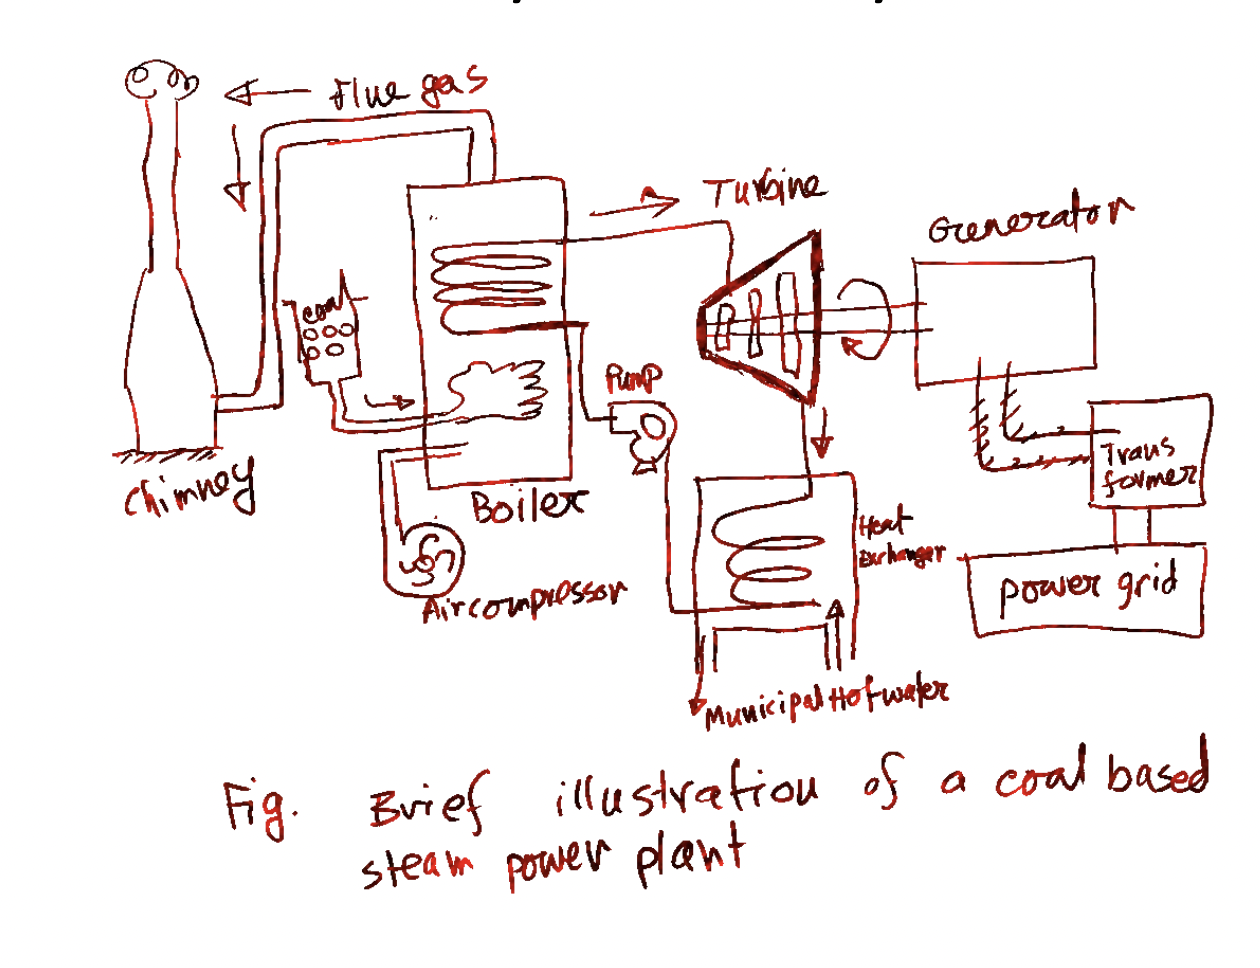 Flue gas
Turbine
Generator
coal
Pump
Trans
former
Chimney
Boiler
Heat
Exchanger
Air compressor
power grid
Municipal Hot water
Fig. Brief illustration of a coal based
steam power plant